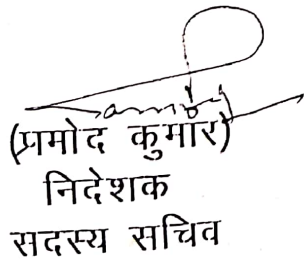 (प्रमोद कुमार)
निदेशक
सदस्य सचिव